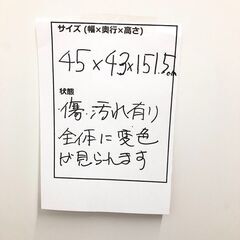 サイズ (幅×奥行×高さ)
45×43×151.5cm
状態
傷・汚れ有り
全体に変色
は見られます